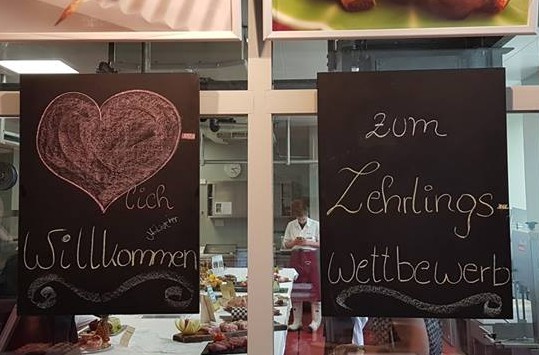 lich
Willkommen
zum
Lehrlings
wettbewerb